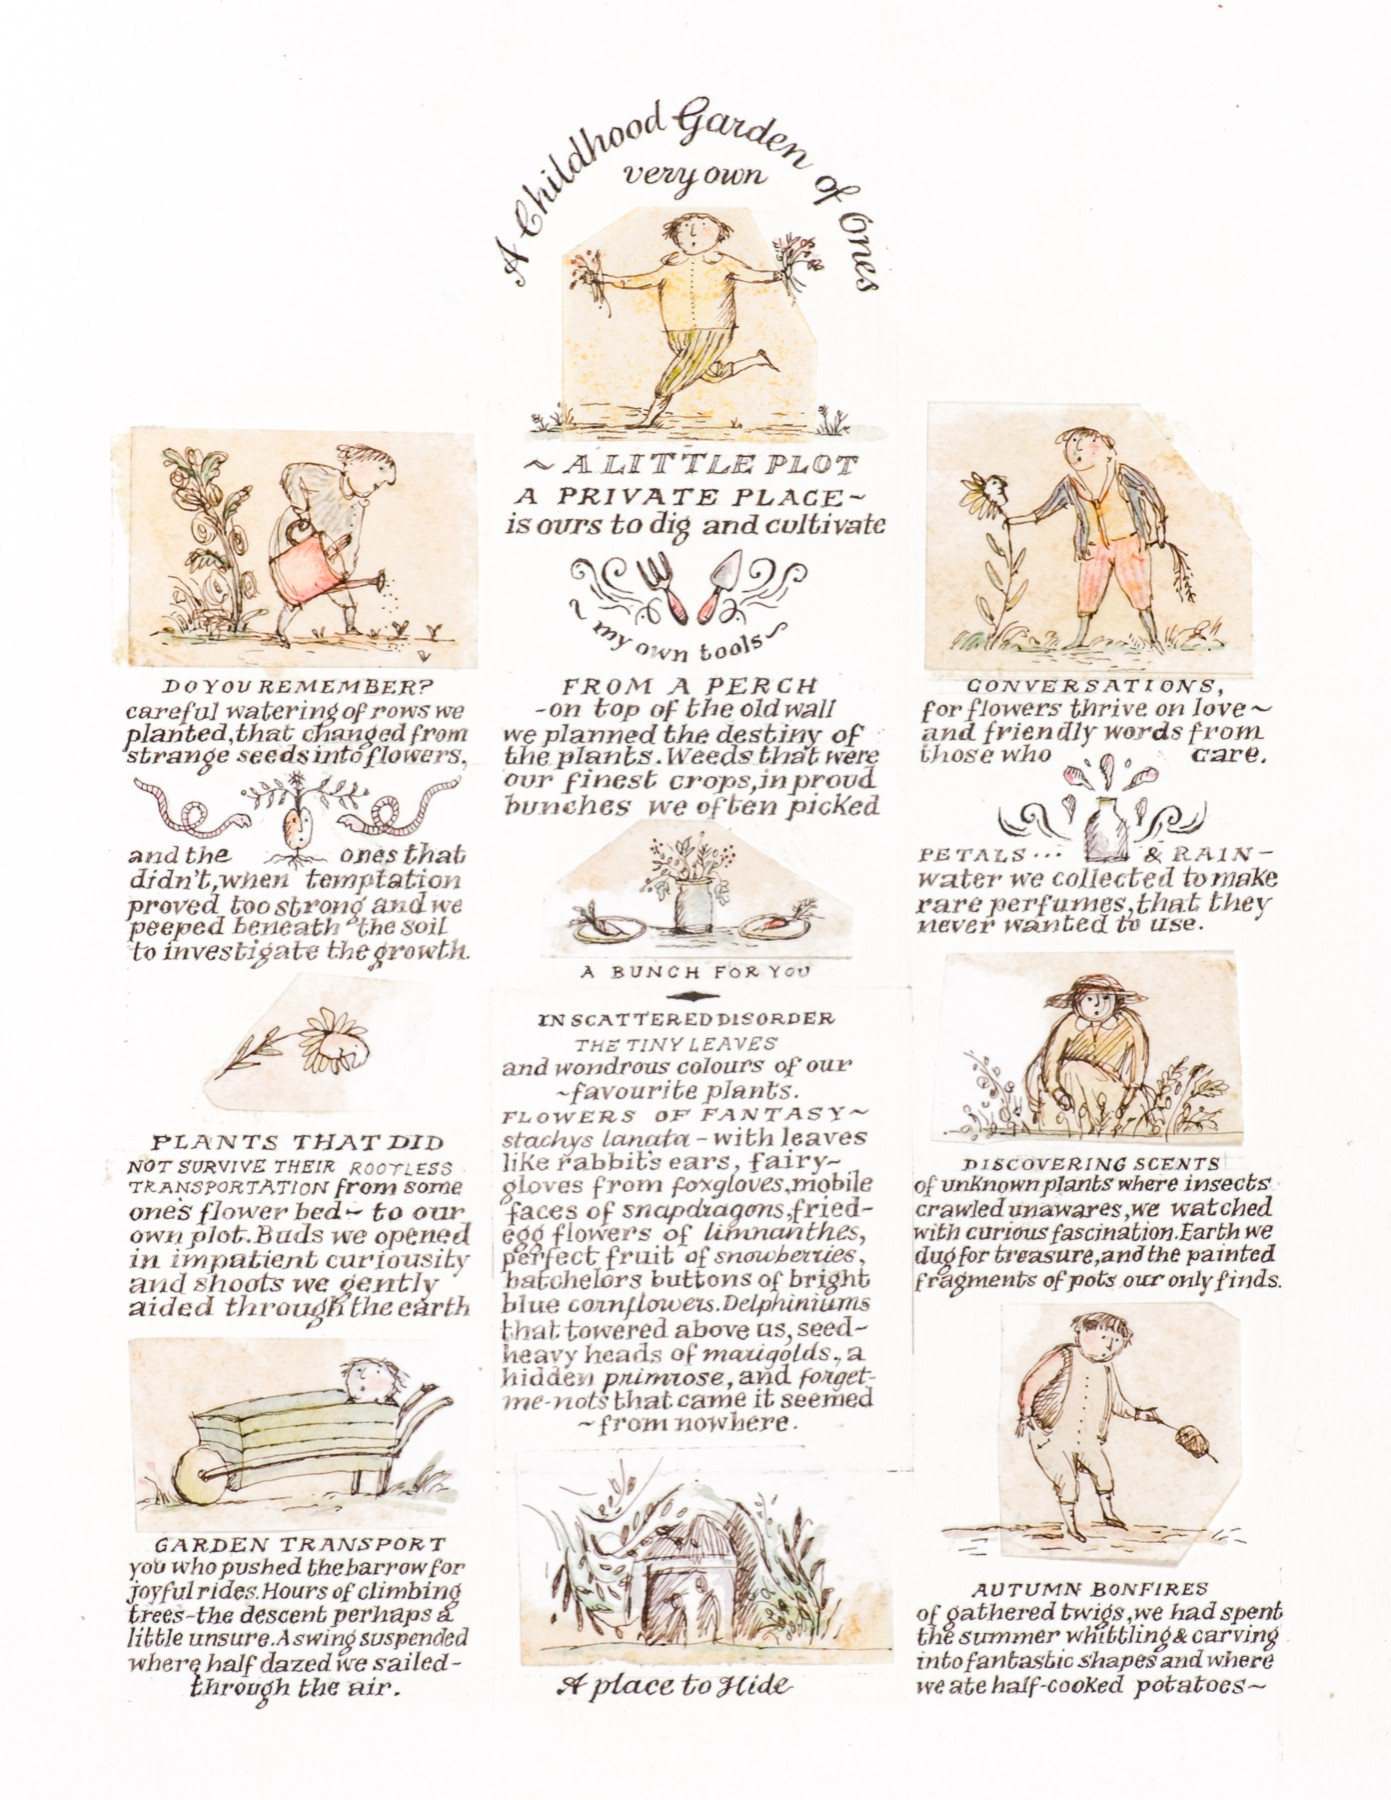 A Childhood Garden of Ones
very own
~ A LITTLE PLOT
A PRIVATE PLACE ~
is ours to dig and cultivate
~ my own tools ~
FROM A PERCH
- on top of the old wall
we planned the destiny of
the plants. Weeds that were
our finest crops, in proud
bunches we often picked
A BUNCH FOR YOU
IN SCATTERED DISORDER
THE TINY LEAVES
and wondrous colours of our
~ favourite plants.
FLOWERS OF FANTASY ~
stachys lanata - with leaves
like rabbit's ears, fairy-
gloves from foxgloves, mobile
faces of snapdragons, fried-
egg flowers of limnanthes,
perfect fruit of snowberries,
batchelors buttons of bright
blue cornflowers. Delphiniums
that towered above us, seed-
heavy heads of marigolds., a
hidden primrose, and forget-
me-nots that came it seemed
~ from nowhere.
A place to Hide
DO YOU REMEMBER?
careful watering of rows we
planted, that changed from
strange seeds into flowers,
and the ones that
didn't, when temptation
proved too strong and we
peeped beneath the soil
to investigate the growth.
PLANTS THAT DID
NOT SURVIVE THEIR ROOTLESS
TRANSPORTATION from some
one's flower bed ~ to our
own plot. Buds we opened
in impatient curiousity
and shoots we gently
aided through the earth
GARDEN TRANSPORT
you who pushed the barrow for
joyful rides. Hours of climbing
trees - the descent perhaps a
little unsure. A swing suspended
where half dazed we sailed -
through the air.
CONVERSATIONS,
for flowers thrive on love ~
and friendly words from
those who care.
PETALS ... & RAIN -
water we collected to make
rare perfumes, that they
never wanted to use.
DISCOVERING SCENTS
of unknown plants where insects
crawled unawares, we watched
with curious fascination. Earth we
dug for treasure, and the painted
fragments of pots our only finds.
AUTUMN BONFIRES
of gathered twigs, we had spent
the summer whittling & carving
into fantastic shapes and where
we ate half-cooked potatoes ~